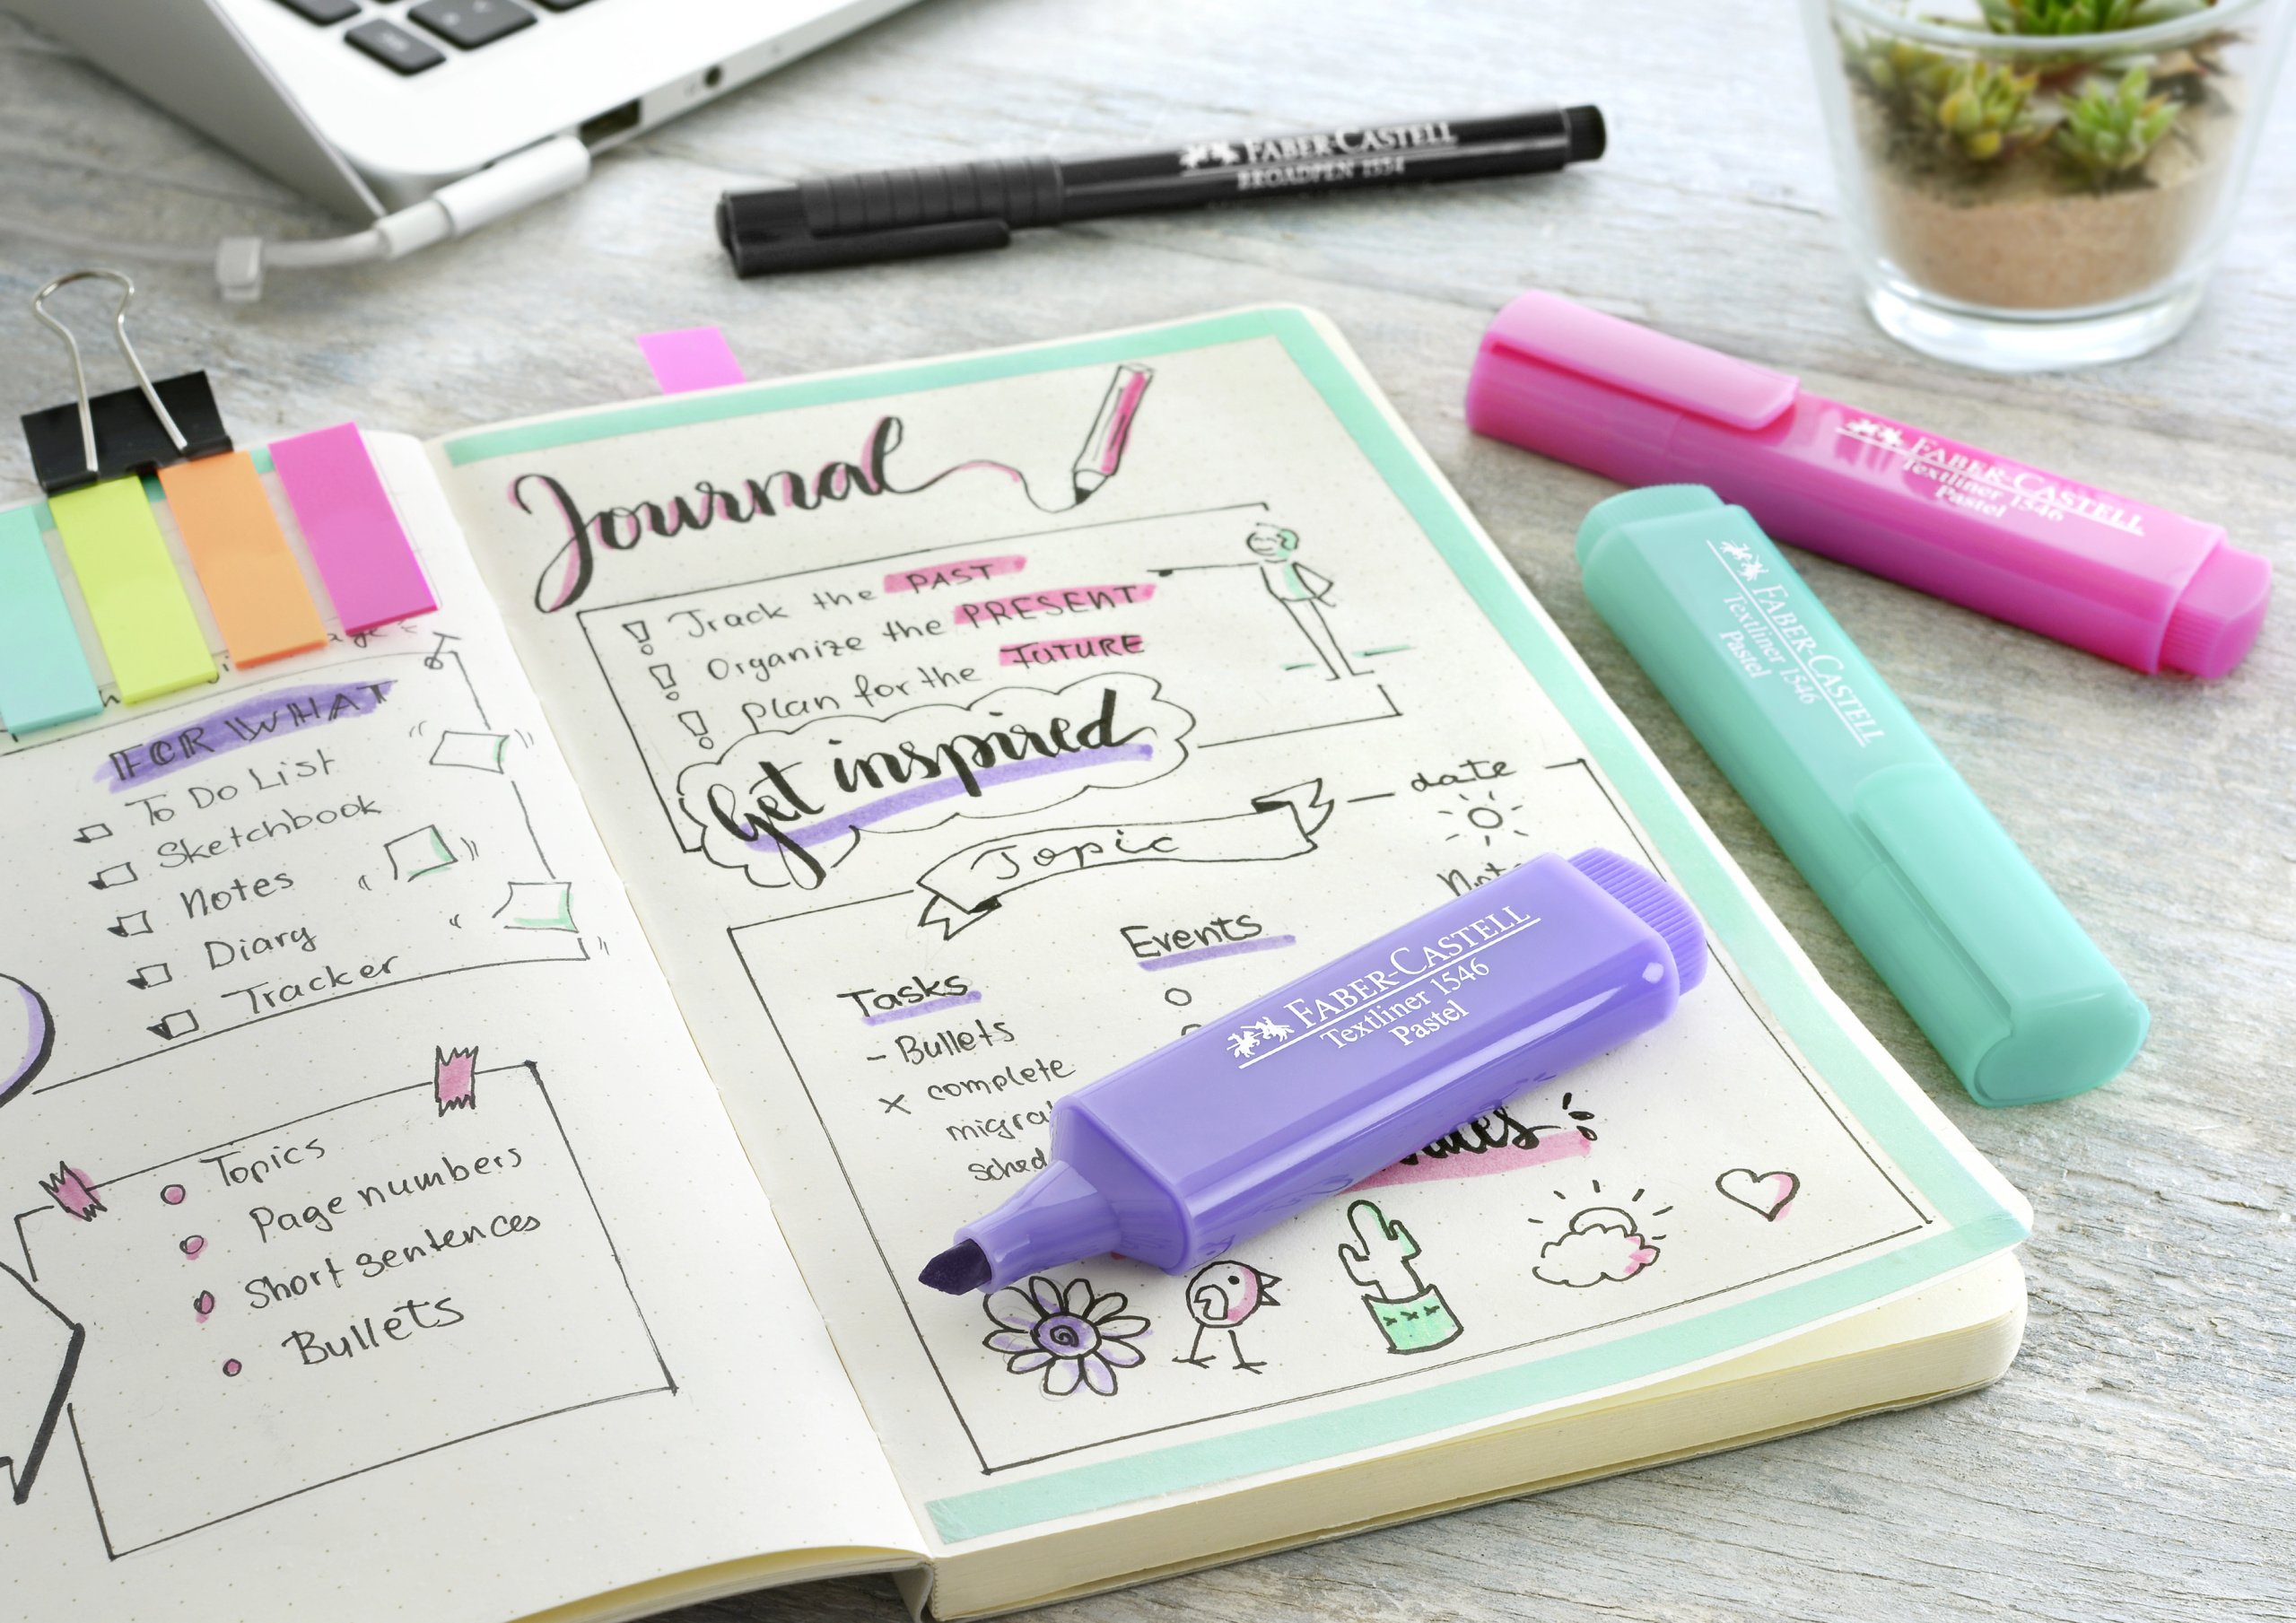 FABER-CASTELL
BROADPEN 1554
FABER-CASTELL
Textliner 1546
Pastel
FABER-CASTELL
Textliner 1546
Pastel
FOR WHAT
To Do List
Sketchbook
Notes
Diary
Tracker
Topics
Page numbers
Short sentences
Bullets
Journal
! Track the PAST
! Organize the PRESENT
! Plan for the FUTURE
Get inspired
Topic
date
Tasks
- Bullets
x complete
Events
FABER-CASTELL
Textliner 1546
Pastel